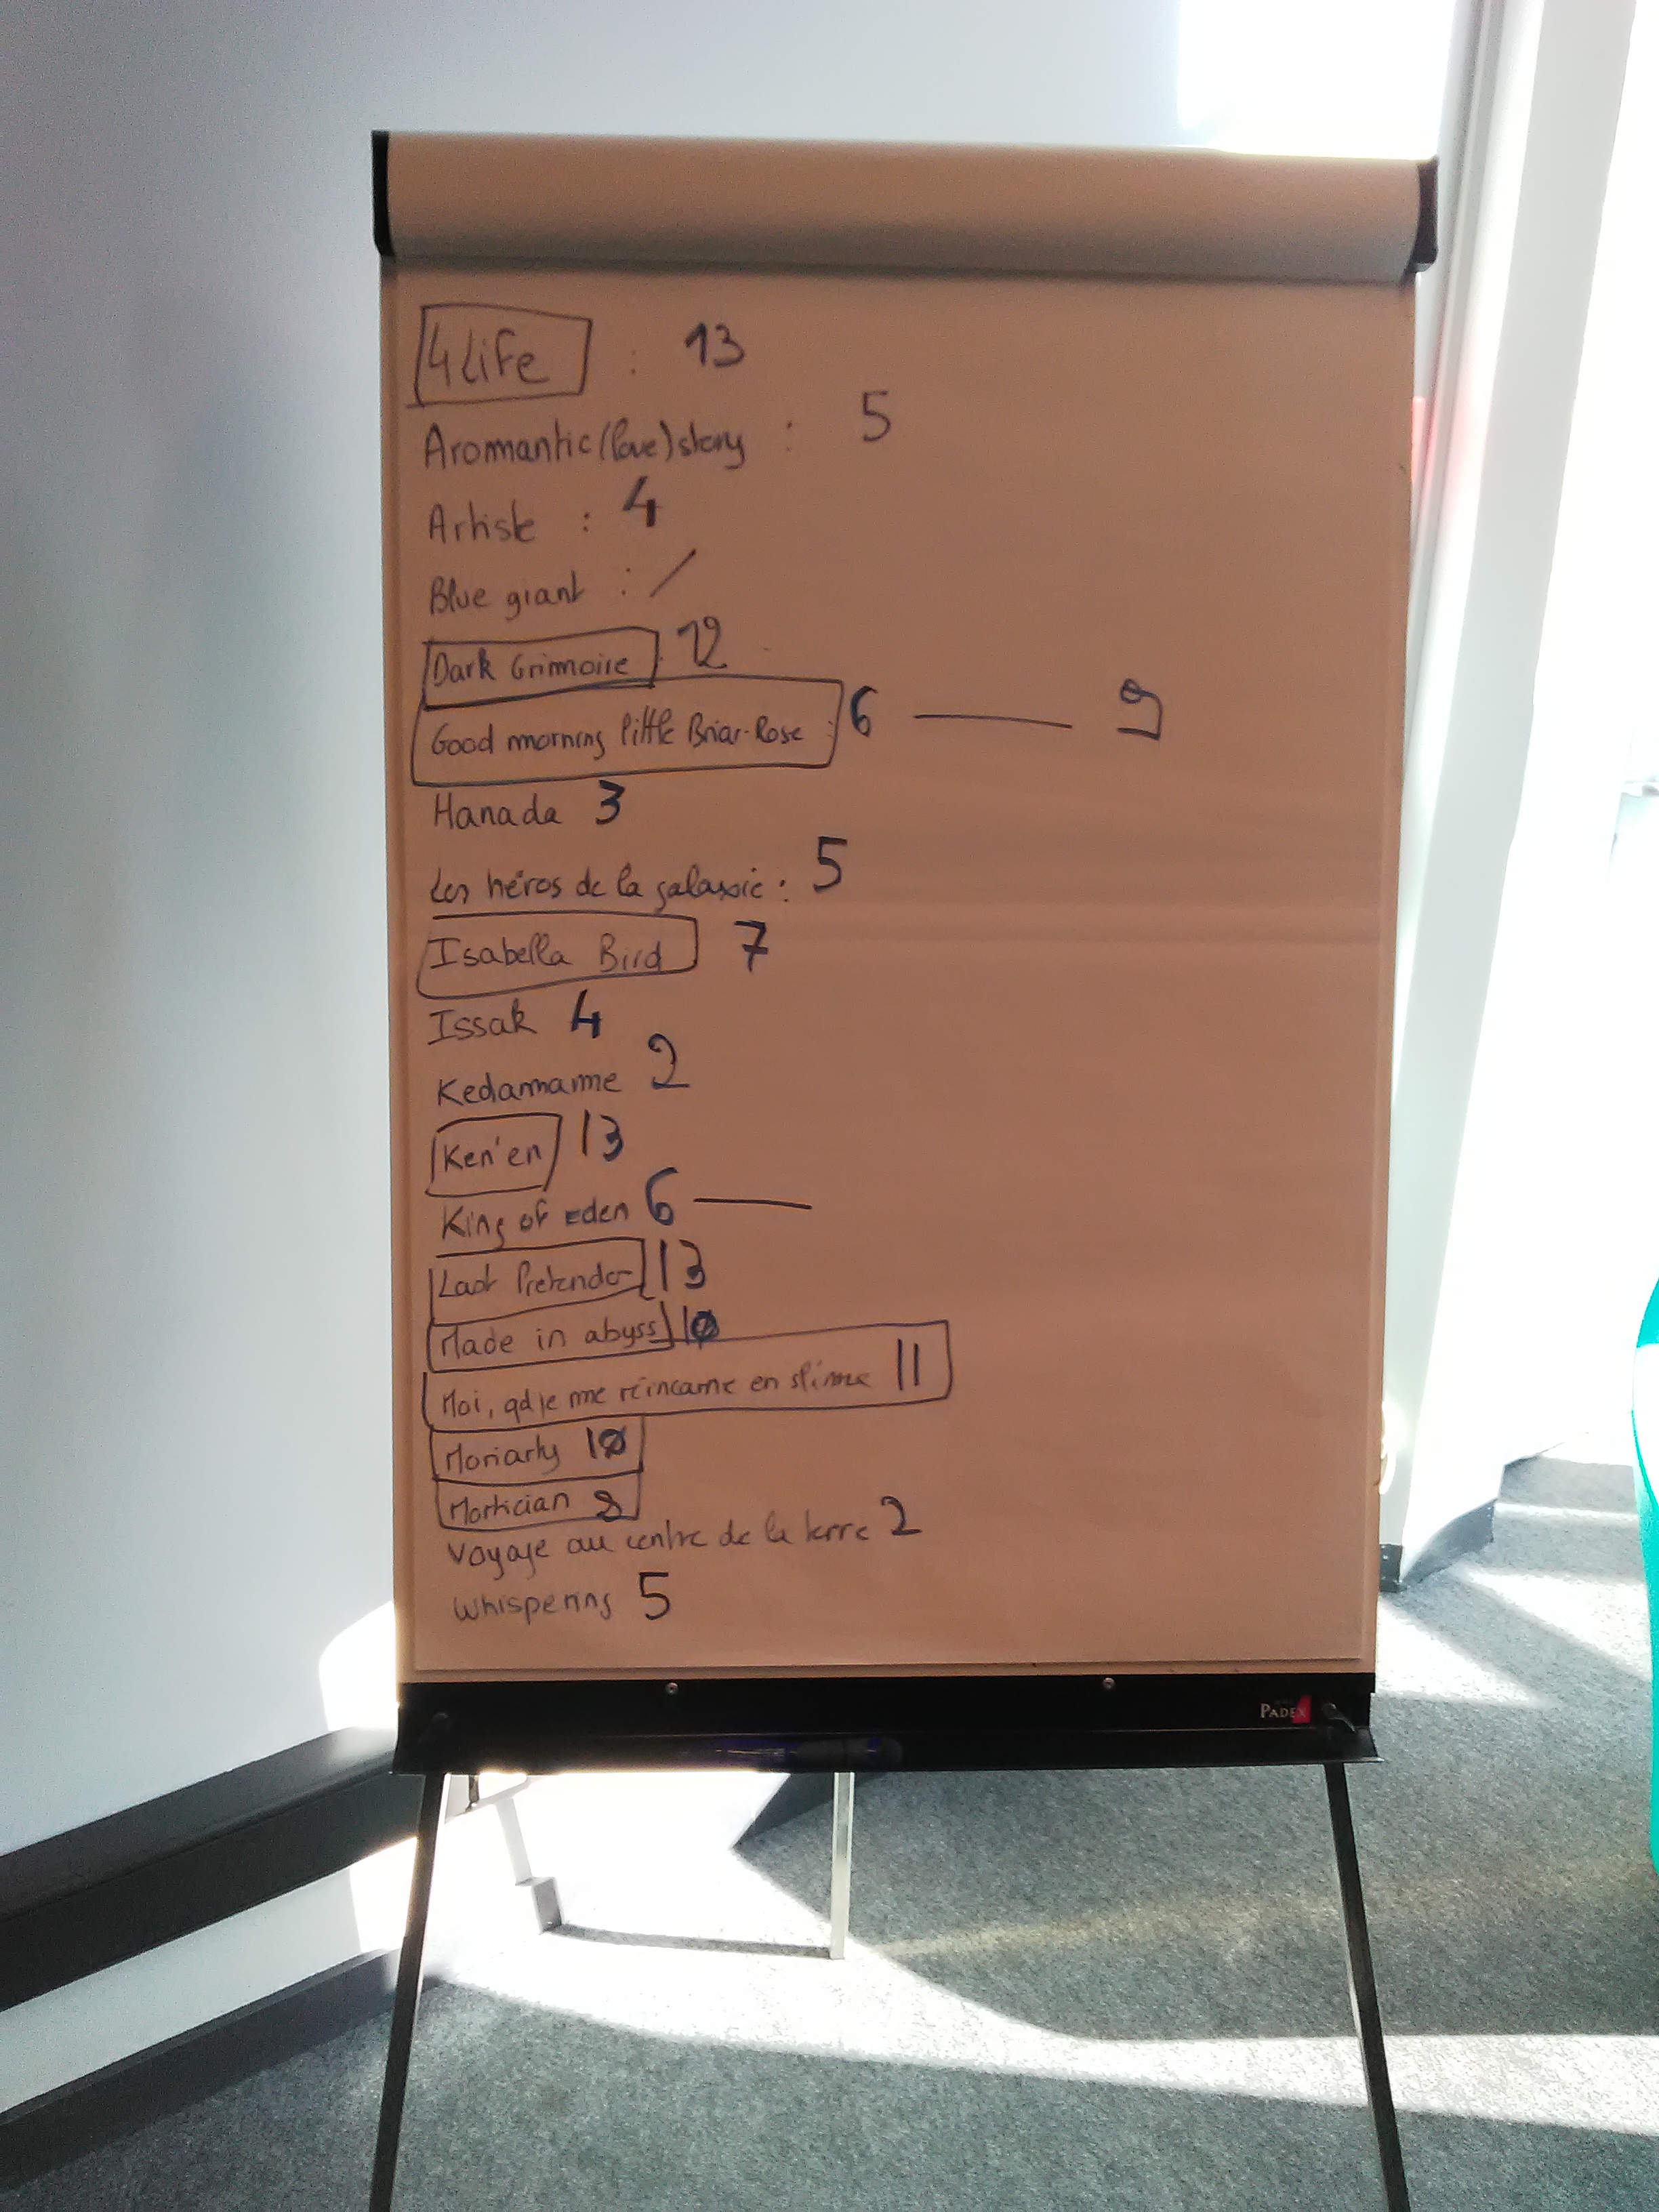 4Life : 13
Aromantic (love) story : 5
Artiste : 4
Blue giant : /
Dark Grimoire : 12
Good morning little Briar-Rose : 6 — 9
Hanada 3
Les héros de la galaxie : 5
Isabella Bird 7
Issak 4
Kedamame 2
Ken'en 13
King of eden 6 —
Last Pretender 13
Made in abyss 10
Moi, qd je me réincarne en slime 11
Moriarty 10
Mortician 8
Voyage au centre de la terre 2
Whispering 5
PADEX